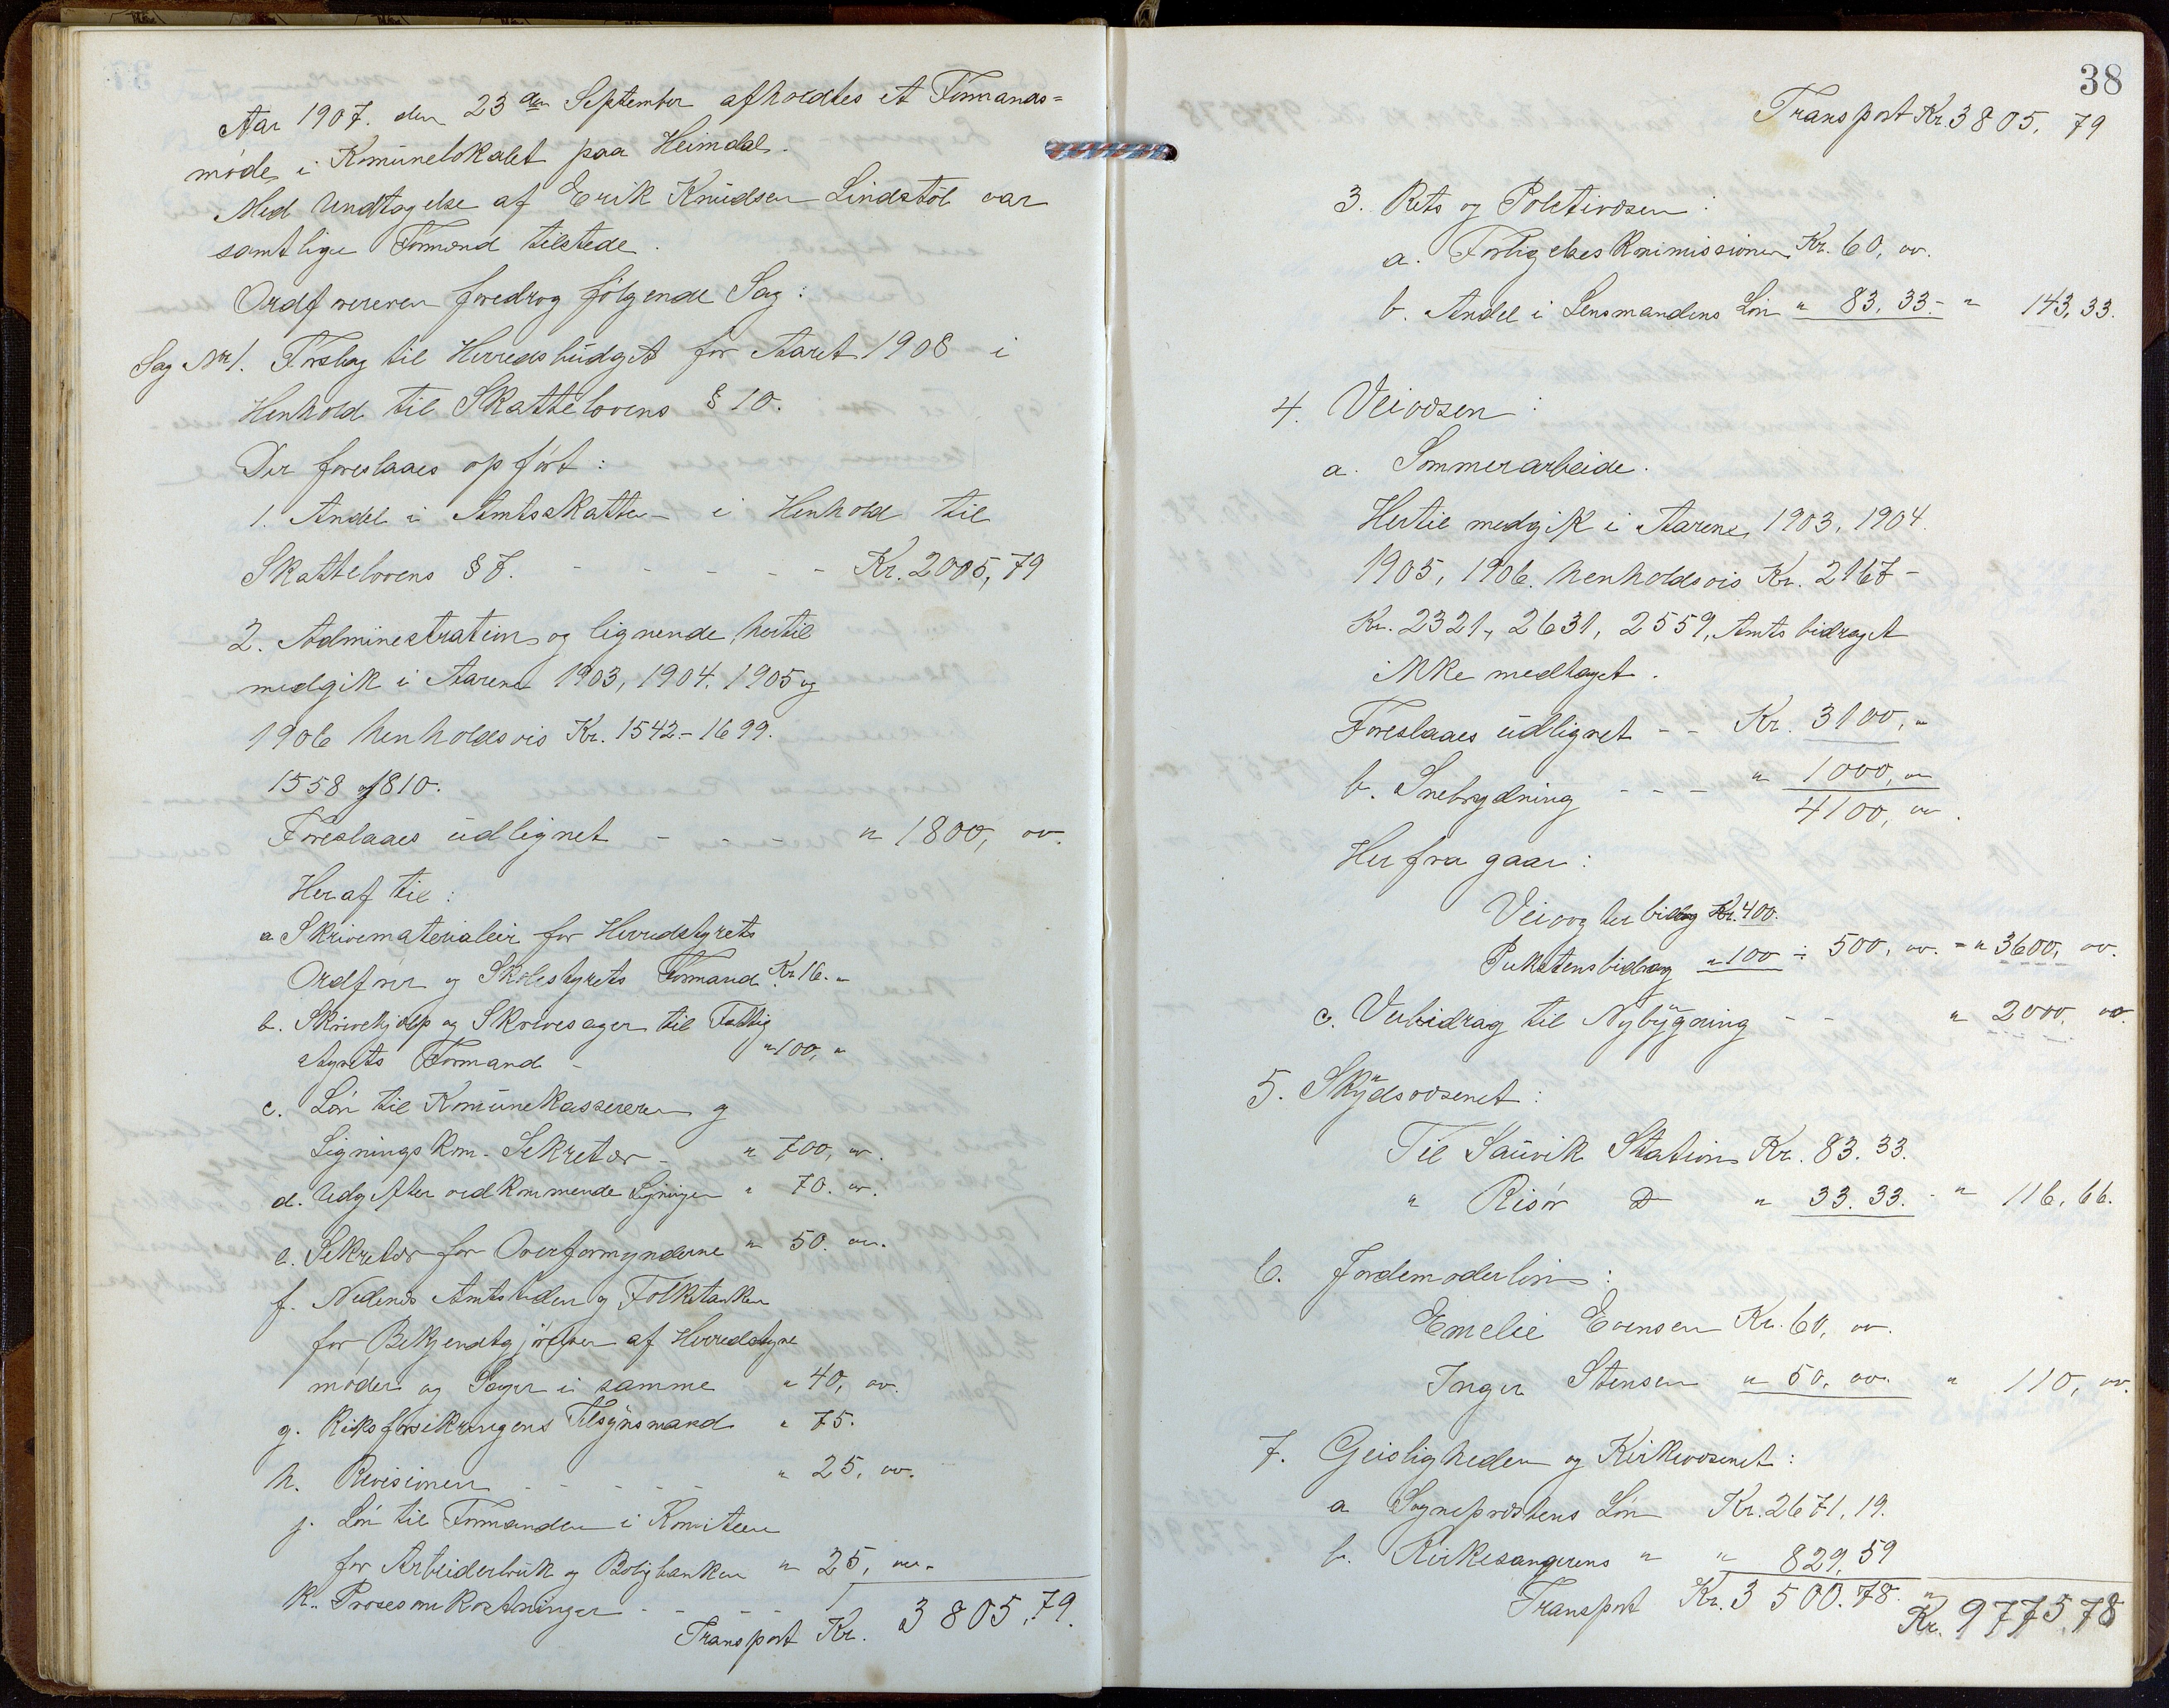 Aar 1907. den 23 den September afholdtes et Formands=
møde i Komunelokalet paa Heimdal.
Med Undtagelse af Erik Knudsen Lindstøl var
samtlige Formænd tilstede.
Ordføreren foredrog følgende Sag:
Sag No 1. Forslag til Herredsbudget for Aaret 1908 i
Henhold til Skattelovens § 10.
Der foreslaaes opført:
1. Andel i Amtsskatten i Henhold til
Skattelovens § 7. - - - - - Kr. 2005,79
2. Adminestration og lignende, hertil
medgik i Aarene 1903, 1904. 1905 og
1906 henholdsvis Kr. 1542 - 1699.
1558 og 1810.
Foreslaaes udlignet - - - " 1800, oo.
Heraf til:
a Skrivematerialier for Herredstyrets
Ordfører og Skolestyrets Formand Kr. 16. "
b. Skrivehjælp og Skrivesager til Fattig
styrets Formand - " 100, "
c. Løn til Komunekassereren og
Ligningskom. Sekretær - " 700, oo.
d. Udgifter vedkommende Ligningen " 70. oo.
e. Sekretær for Overformynderne " 50. oo.
f. Nedenes Amtstidende og Folketanken
for Bekjendtgjørelser af Herredstyre
møder og Sager i samme " 40, oo.
g. Riksforsikringens Tilsynsmand " 75.
h. Revisionen - - - - - " 25, oo.
j. Løn til Formanden i Komiteen
for Arbeiderbruk og Boligbanken " 25, oo.
k. Prosesomkostninger - - - -
Transport Kr. 3805,79.
38
Transport Kr. 3805, 79
3. Rets og Poletivæsen:
a. Forligelseskommissionen Kr. 60, oo.
b. Andel i Lensmandens Løn " 83, 33 - " 143,33.
4. Veivæsen:
a. Sommerarbeide.
Hertil medgik i Aarene 1903, 1904.
1905, 1906. henholdsvis Kr. 2167 -
Kr. 2321, 2631, 2559, Amtsbidraget
ikke medtaget.
Foreslaaes udlignet - - Kr. 3100, "
b. Snebrydning - - - " 1000, "
4100, oo.
Herfra gaar:
Veivogterbidrag Kr. 400.
Pukstensbidrag " 100 ÷ 500, oo. = " 3600, oo.
c. Veibidrag til Nybygning - - " 2000, oo.
5. Skydsvæsenet:
Til Sauvik Station Kr. 83. 33.
" Risør D " 33. 33. - " 116, 66.
6. Jordemoderløn:
Emelie Evensen Kr. 60, oo.
Inger Stensen " 50, oo. " 110, oo.
7. Geisligheden og Kirkevæsenet:
a Sogneprestens Løn Kr. 2671, 19.
b. Kirkesangerens " " 829, 59
Transport Kr. 3 500. 78. " Kr. 9775,78